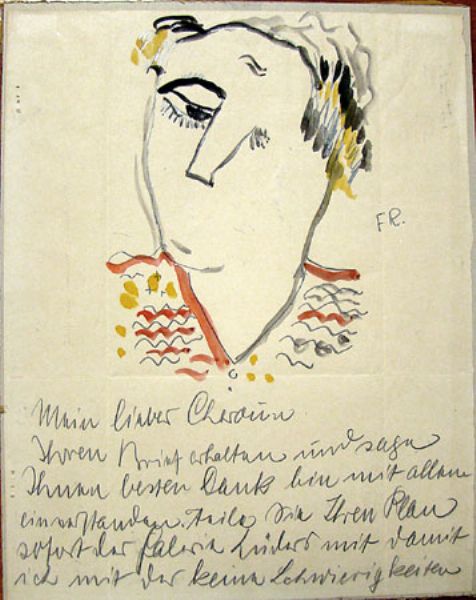 FR.
Mein lieber Cheroux
Ihren Brief erhalten und sage
Ihnen besten Dank bin mit allem
einverstanden. teile Sie Ihren Plan
sofort der Galerie Lüders mit damit
ich mit der keine Schwierigkeiten